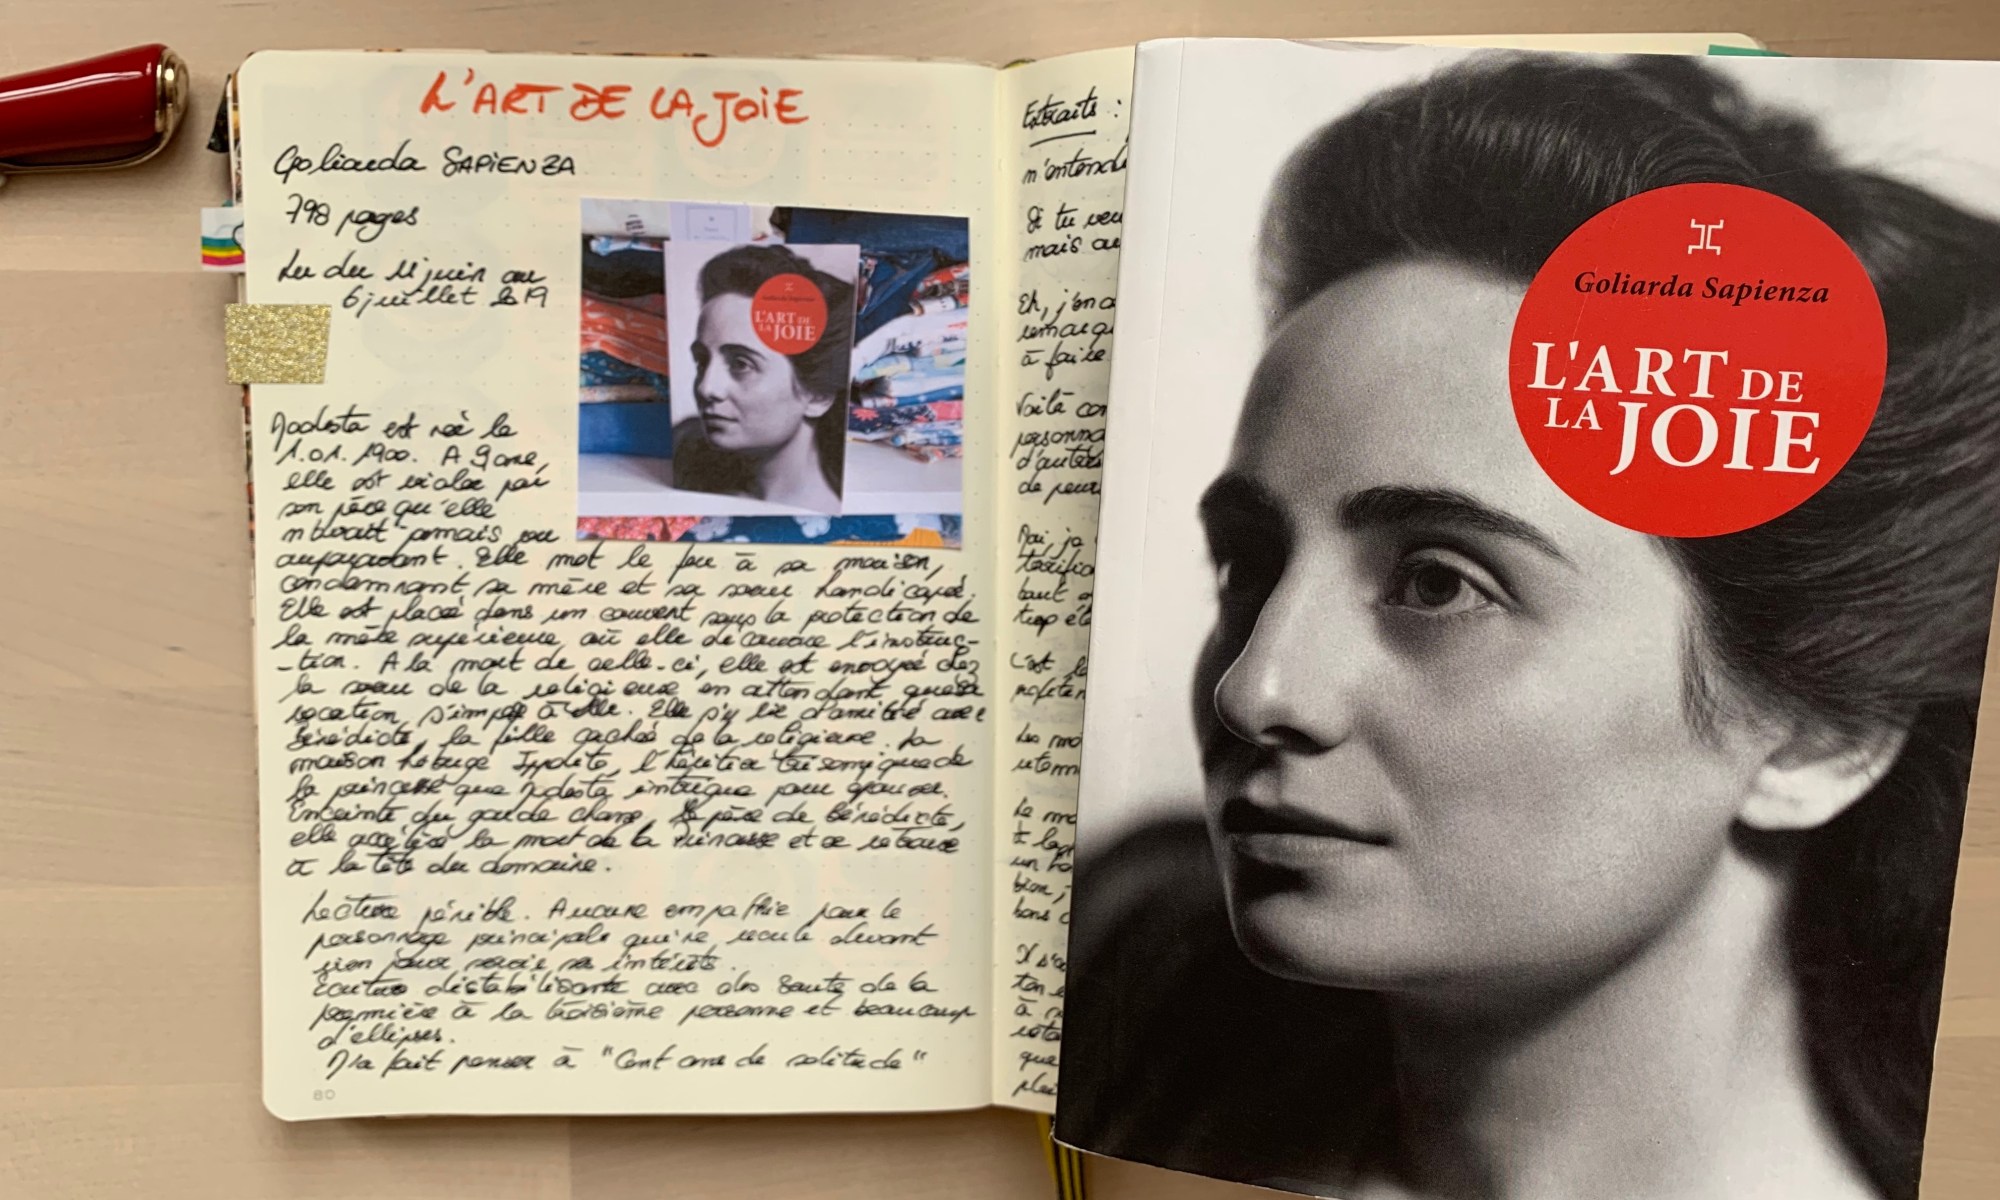 L'ART DE LA JOIE
Goliarda SAPIENZA
798 pages
Lu du 11 juin au
6 juillet 2019
Modesta est née le
1.01.1900. A 9 ans,
elle est violée par
son père qu'elle
n'avait jamais vu
auparavant. Elle met le feu à sa maison,
condamnant sa mère et sa soeur handicapée.
Elle est placée dans un couvent sous la protection de
la mère supérieure où elle découvre l'instruc-
-tion. A la mort de celle-ci, elle est envoyée chez
la soeur de la religieuse en attendant que sa
vocation s'impose à elle. Elle s'y lie d'amitié avec
Bénédicte, la fille cachée de la religieuse. La
maison héberge Ippolito, l'héritier trisomique de
la princesse que Modesta intrigue pour épouser.
Enceinte du garde chasse, le père de Bénédicte,
elle accélère la mort de la princesse et se retrouve
à la tête du domaine.
Lecture pénible. Aucune empathie pour le
personnage principale qui ne recule devant
rien pour servir ses intérêts.
Ecriture déstabilisante avec des sauts de la
première à la troisième personne et beaucoup
d'ellipses.
M'a fait penser à "Cent ans de solitude"
80
Goliarda Sapienza
L'ART DE
LA JOIE
Extraits :
n'entend
Si tu veu
mais au
Eh, j'en a
remarqu
à faire
Voilà com
personna
d'autres
de peur
Moi, je
terrifia
tout
trop été
C'est
Les mo
Le mo
un
bien,
bons
Il s'a
ton
à
que
plei
Goliarda Sapienza
L'ART DE
LA JOIE